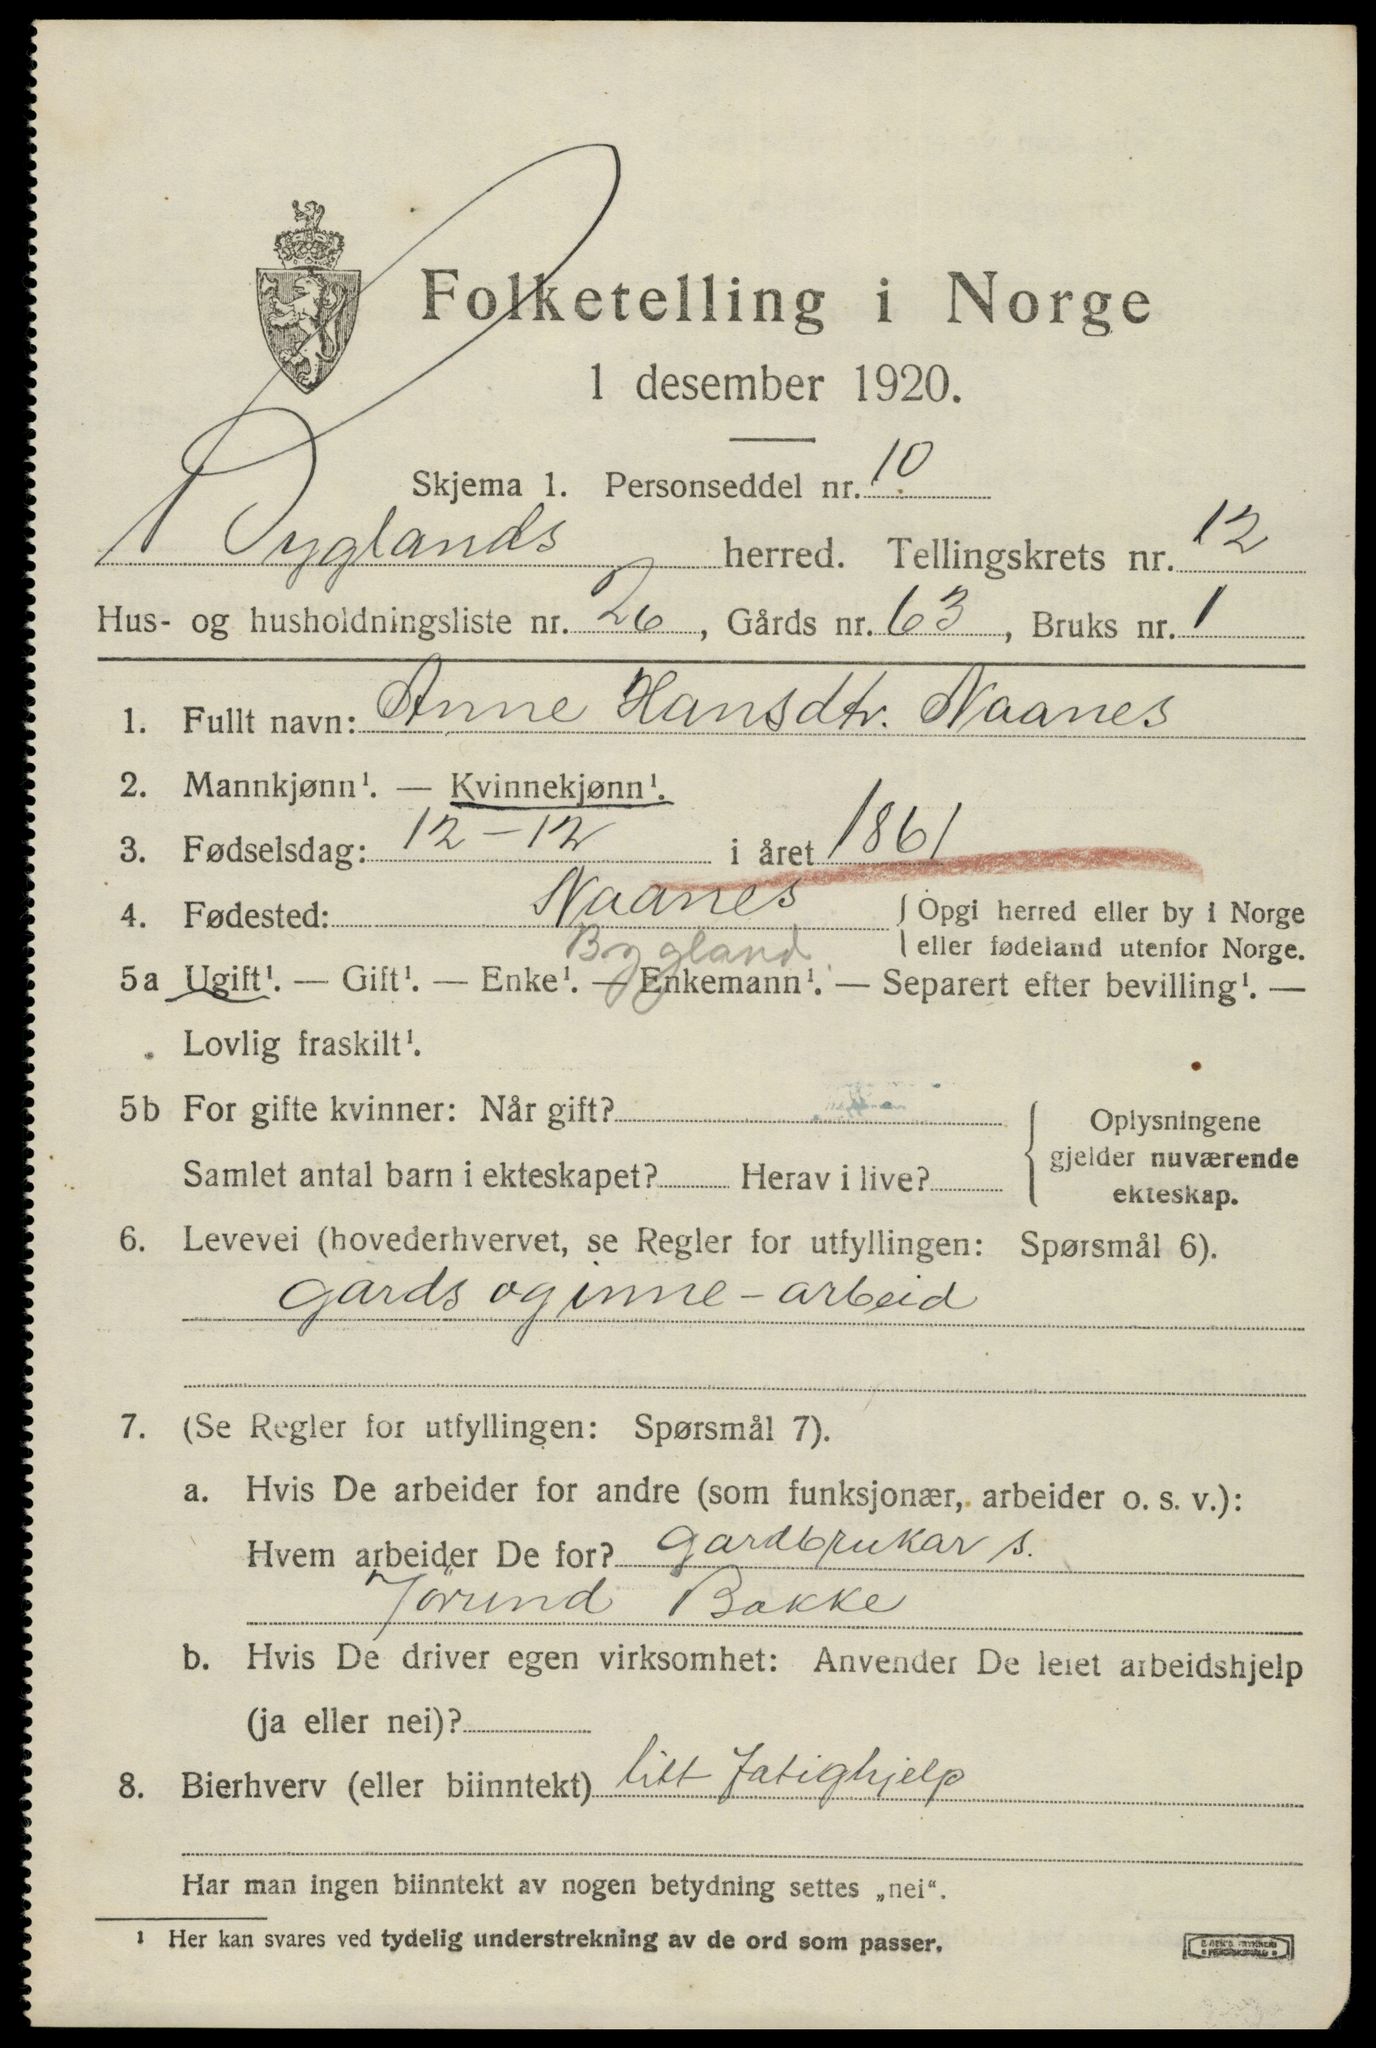 Folketelling i Norge
1 desember 1920.
Skjema 1. Personseddel nr. 10
Byglands herred. Tellingskrets nr. 12
Hus- og husholdningsliste nr. 26, Gårds nr. 63, Bruks nr. 1
1. Fullt navn: Anne Hansdtr. Naanes
2. Mannkjønn¹. — Kvinnekjønn¹.
3. Fødselsdag: 12-12 i året 1861
4. Fødested: Naanes { Opgi herred eller by i Norge
Bygland { eller fødeland utenfor Norge.
5a Ugift¹. — Gift¹. — Enke¹. — Enkemann¹. — Separert efter bevilling¹. —
Lovlig fraskilt¹.
5b For gifte kvinner: Når gift?
Samlet antal barn i ekteskapet? Herav i live?
Oplysningene
gjelder nuværende
ekteskap.
6. Levevei (hovederhvervet, se Regler for utfyllingen: Spørsmål 6).
gards og inne-arbeid
7. (Se Regler for utfyllingen: Spørsmål 7).
a. Hvis De arbeider for andre (som funksjonær, arbeider o. s. v.):
Hvem arbeider De for? gardbrukar s.
Jörund Bakke
b. Hvis De driver egen virksomhet: Anvender De leiet arbeidshjelp
(ja eller nei)?
8. Bierhverv (eller biinntekt) litt fatighjelp
Har man ingen biinntekt av nogen betydning settes „nei“.
¹ Her kan svares ved tydelig understrekning av de ord som passer.